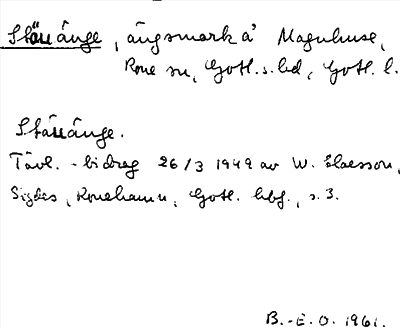 Stäuränge, ängsmark å Maguhuse,
Rone sn, Gotl. s. hd, Gotl. l.
Stäuränge.
Tävl. - bidrag 26/3 1949 av W. Claesson,
Sigdes, Ronehamn, Gotl. hbf., s. 3.
B.-E. O. 1961.